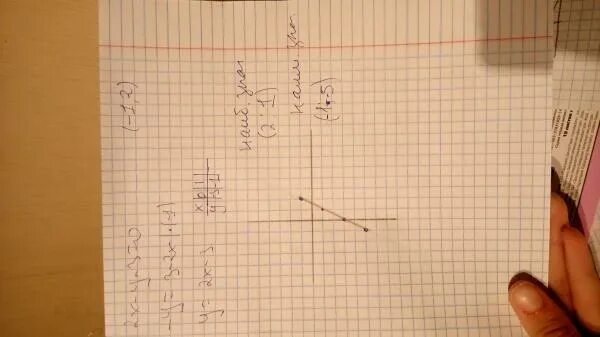 2x-y-3=0 (-1;2)
-y=3-2x |·(-1)
y=2x-3
x | 0 | 1
y | -3 | -1
наиб. знач
(2; 1)
наим. знач
(-1;-5)